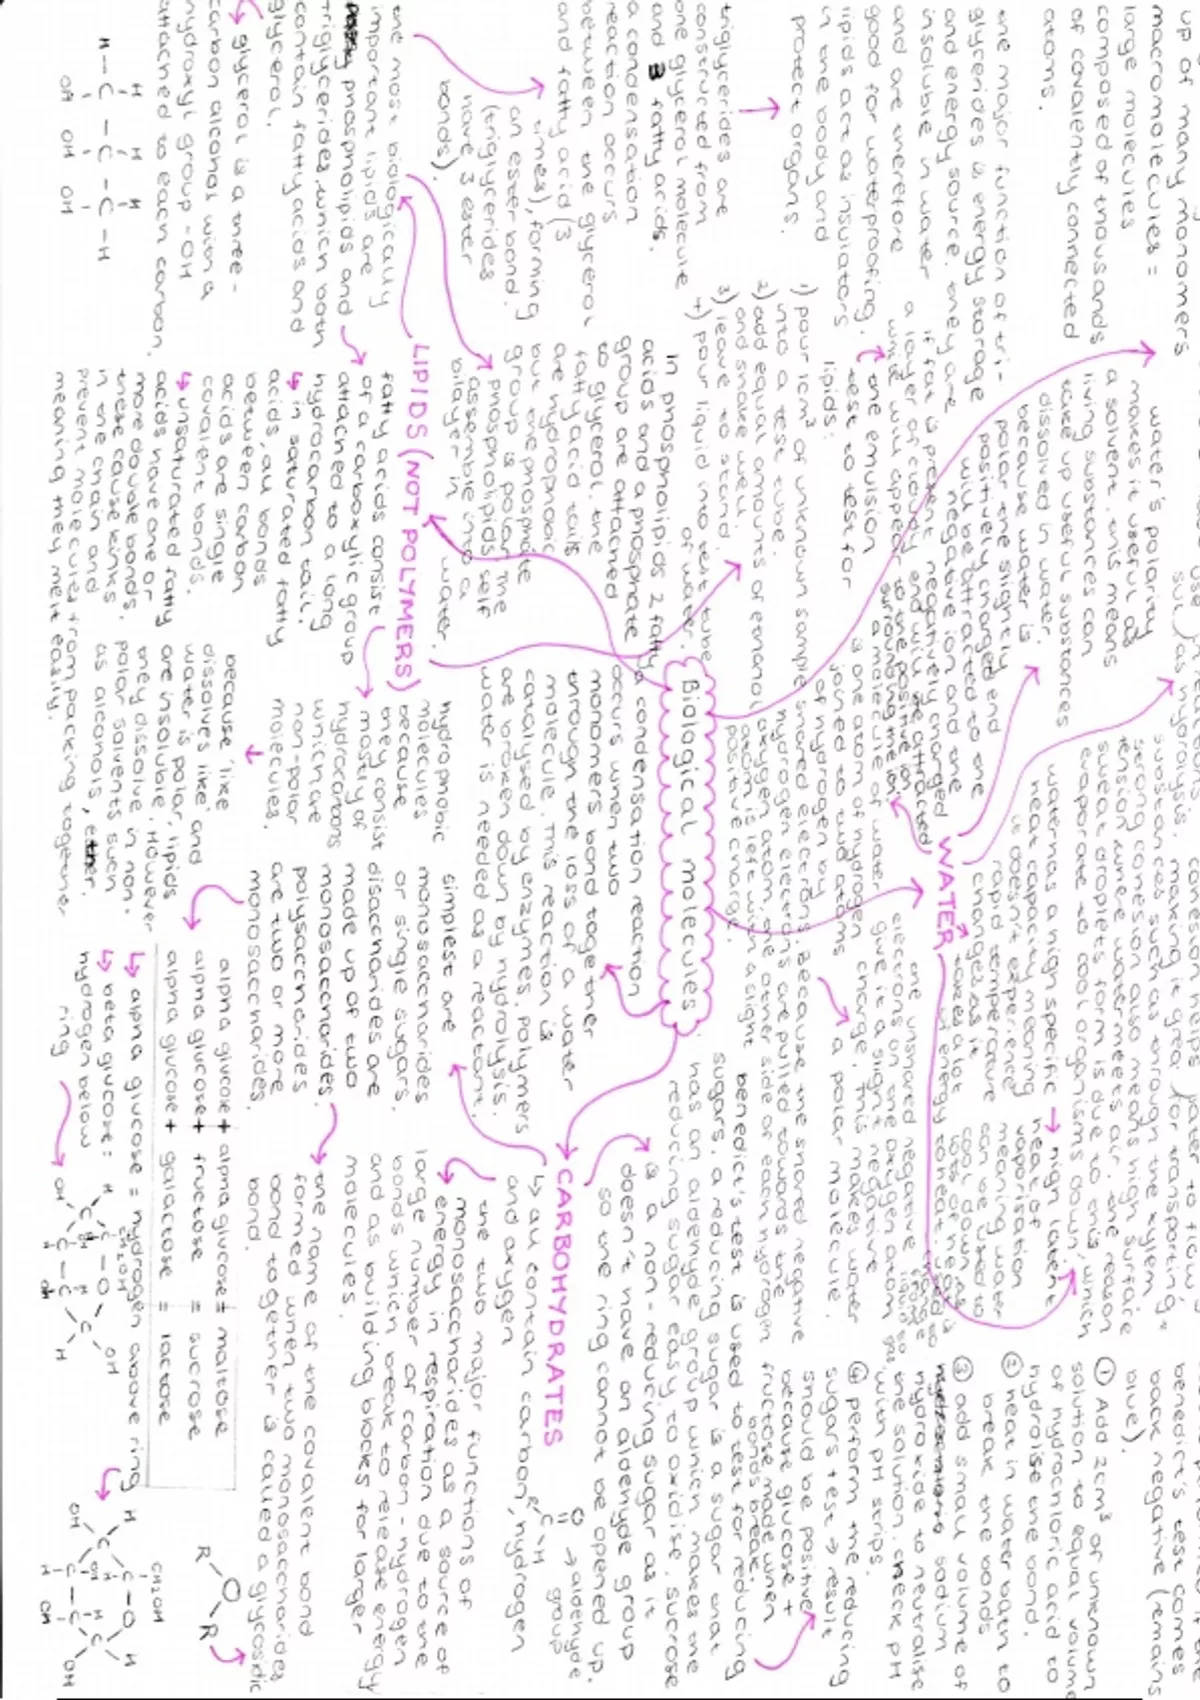 up of many monomers
macromolecules =
large molecules
composed of thousands
of covalently connected
atoms.
the major function of tri-
glycerides is energy storage
and energy source. they are
insoluble in water
and are therefore
good for waterproofing.
lipids act as insulators
in the body and
protect organs.
triglycerides are
constructed from
one glycerol molecule
and 3 fatty acids.
a condensation
reaction occurs
between the glycerol
and fatty acid (3
times), forming
an ester bond.
(triglycerides
have 3 ester
bonds).
the most biologically
important lipids are
phospholipids and
triglycerides which both
contain fatty acids and
glycerol.
↳ glycerol is a three-
carbon alcohol with a
hydroxyl group -OH
attached to each carbon.
H H H
H - C - C - C - H
OH OH OH
water's polarity
makes it useful as
a solvent. this means
living substances can
take up useful substances
dissolved in water.
because water is
polar the slightly
positively charged end
will be attracted to the
negative ion and the
negatively charged
end will be attracted
to the positive ion
surrounding the ion.
if fat is present,
a layer of cloudy
white will appear
the emulsion
test to test for
lipids:
1) pour 1cm³ of unknown sample
into a test tube.
2) add equal amounts of ethanol
and shake well.
3) leave to stand.
4) pour liquid into test tube
of water.
in phospholipids 2 fatty
acids and a phosphate
group are attached
to glycerol. the
fatty acid tails
are hydrophobic
but the phosphate
group is polar. the
phospholipids self
assemble into a
bilayer in water.
LIPIDS (NOT POLYMERS)
fatty acids consist
of a carboxylic group
attached to a long
hydrocarbon tail.
↳ in saturated fatty
acids, all bonds
between carbon
acids are single
covalent bonds.
↳ unsaturated fatty
acids have one or
more double bonds.
these cause kinks
in the chain and
prevent molecules from packing together
meaning they melt easily.
hydrophobic
molecules
because
they consist
mostly of
hydrocarbons
which are
non-polar
molecules.
because 'like
dissolves like' and
water is polar, lipids
are insoluble. However
they dissolve in non-
polar solvents such
as alcohols, ether.
Biological molecules
a condensation reaction
occurs when two
monomers bond together
through the loss of a water
molecule. This reaction is
catalysed by enzymes. Polymers
are broken down by hydrolysis.
water is needed as a reactant.
WATER
a molecule of water
is one atom of oxygen
joined to two atoms
of hydrogen by
shared electrons. because the shared negative
hydrogen electrons are pulled towards the
oxygen atom, the other side of each hydrogen
atom is left with a slight
positive charge.
the unshared negative
electrons on the oxygen atom
give it a slight negative
charge. This makes water
a polar molecule.
water has a high specific
heat capacity meaning
it doesn't experience
rapid temperature
changes as it
takes a lot
of energy to heat
→ high latent
heat of
vaporisation
meaning water
can be used to
cool down as
lots of heat is
hydrolysis.
making it great for transporting
substances such as through the xylem.
strong cohesion also means high surface
tension where water meets air. the reason
sweat droplets form is due to this
evaporate to cool organisms down,
which
CARBOHYDRATES
↳ all contain carbon, hydrogen
and oxygen
simplest are
monosaccharides
or single sugars.
disaccharides are
made up of two
monosaccharides.
polysaccharides
are two or more
monosaccharides.
the two major functions of
monosaccharides as a source of
energy in respiration due to the
large number of carbon-hydrogen
bonds which break to release energy
and as building blocks for larger
molecules.
the name of the covalent bond
formed when two monosaccharides
bond together is called a glycosidic
bond.
R O R
alpha glucose + alpha glucose = maltose
alpha glucose + fructose = sucrose
alpha glucose + galactose = lactose
↳ alpha glucose = hydrogen above ring
↳ beta glucose = hydrogen below
ring
benedict's test is used to test for reducing
sugars. a reducing sugar is a sugar that
has an aldehyde group which makes the
reducing sugar easy to oxidise. sucrose
is a non-reducing sugar as it
doesn't have an aldehyde group
so the ring cannot be opened up.
→ aldehyde
group
benedict's test comes
back negative (remains
blue).
① Add 2cm³ of unknown
solution to equal volume
of hydrochloric acid to
hydrolise the bond.
② heat in water bath to
break the bonds
③ add small volume of
sodium
hydroxide to neutralise
the solution. check pH
with pH strips.
④ perform the reducing
sugars test → result
should be positive
because glucose +
fructose made when
bonds break.